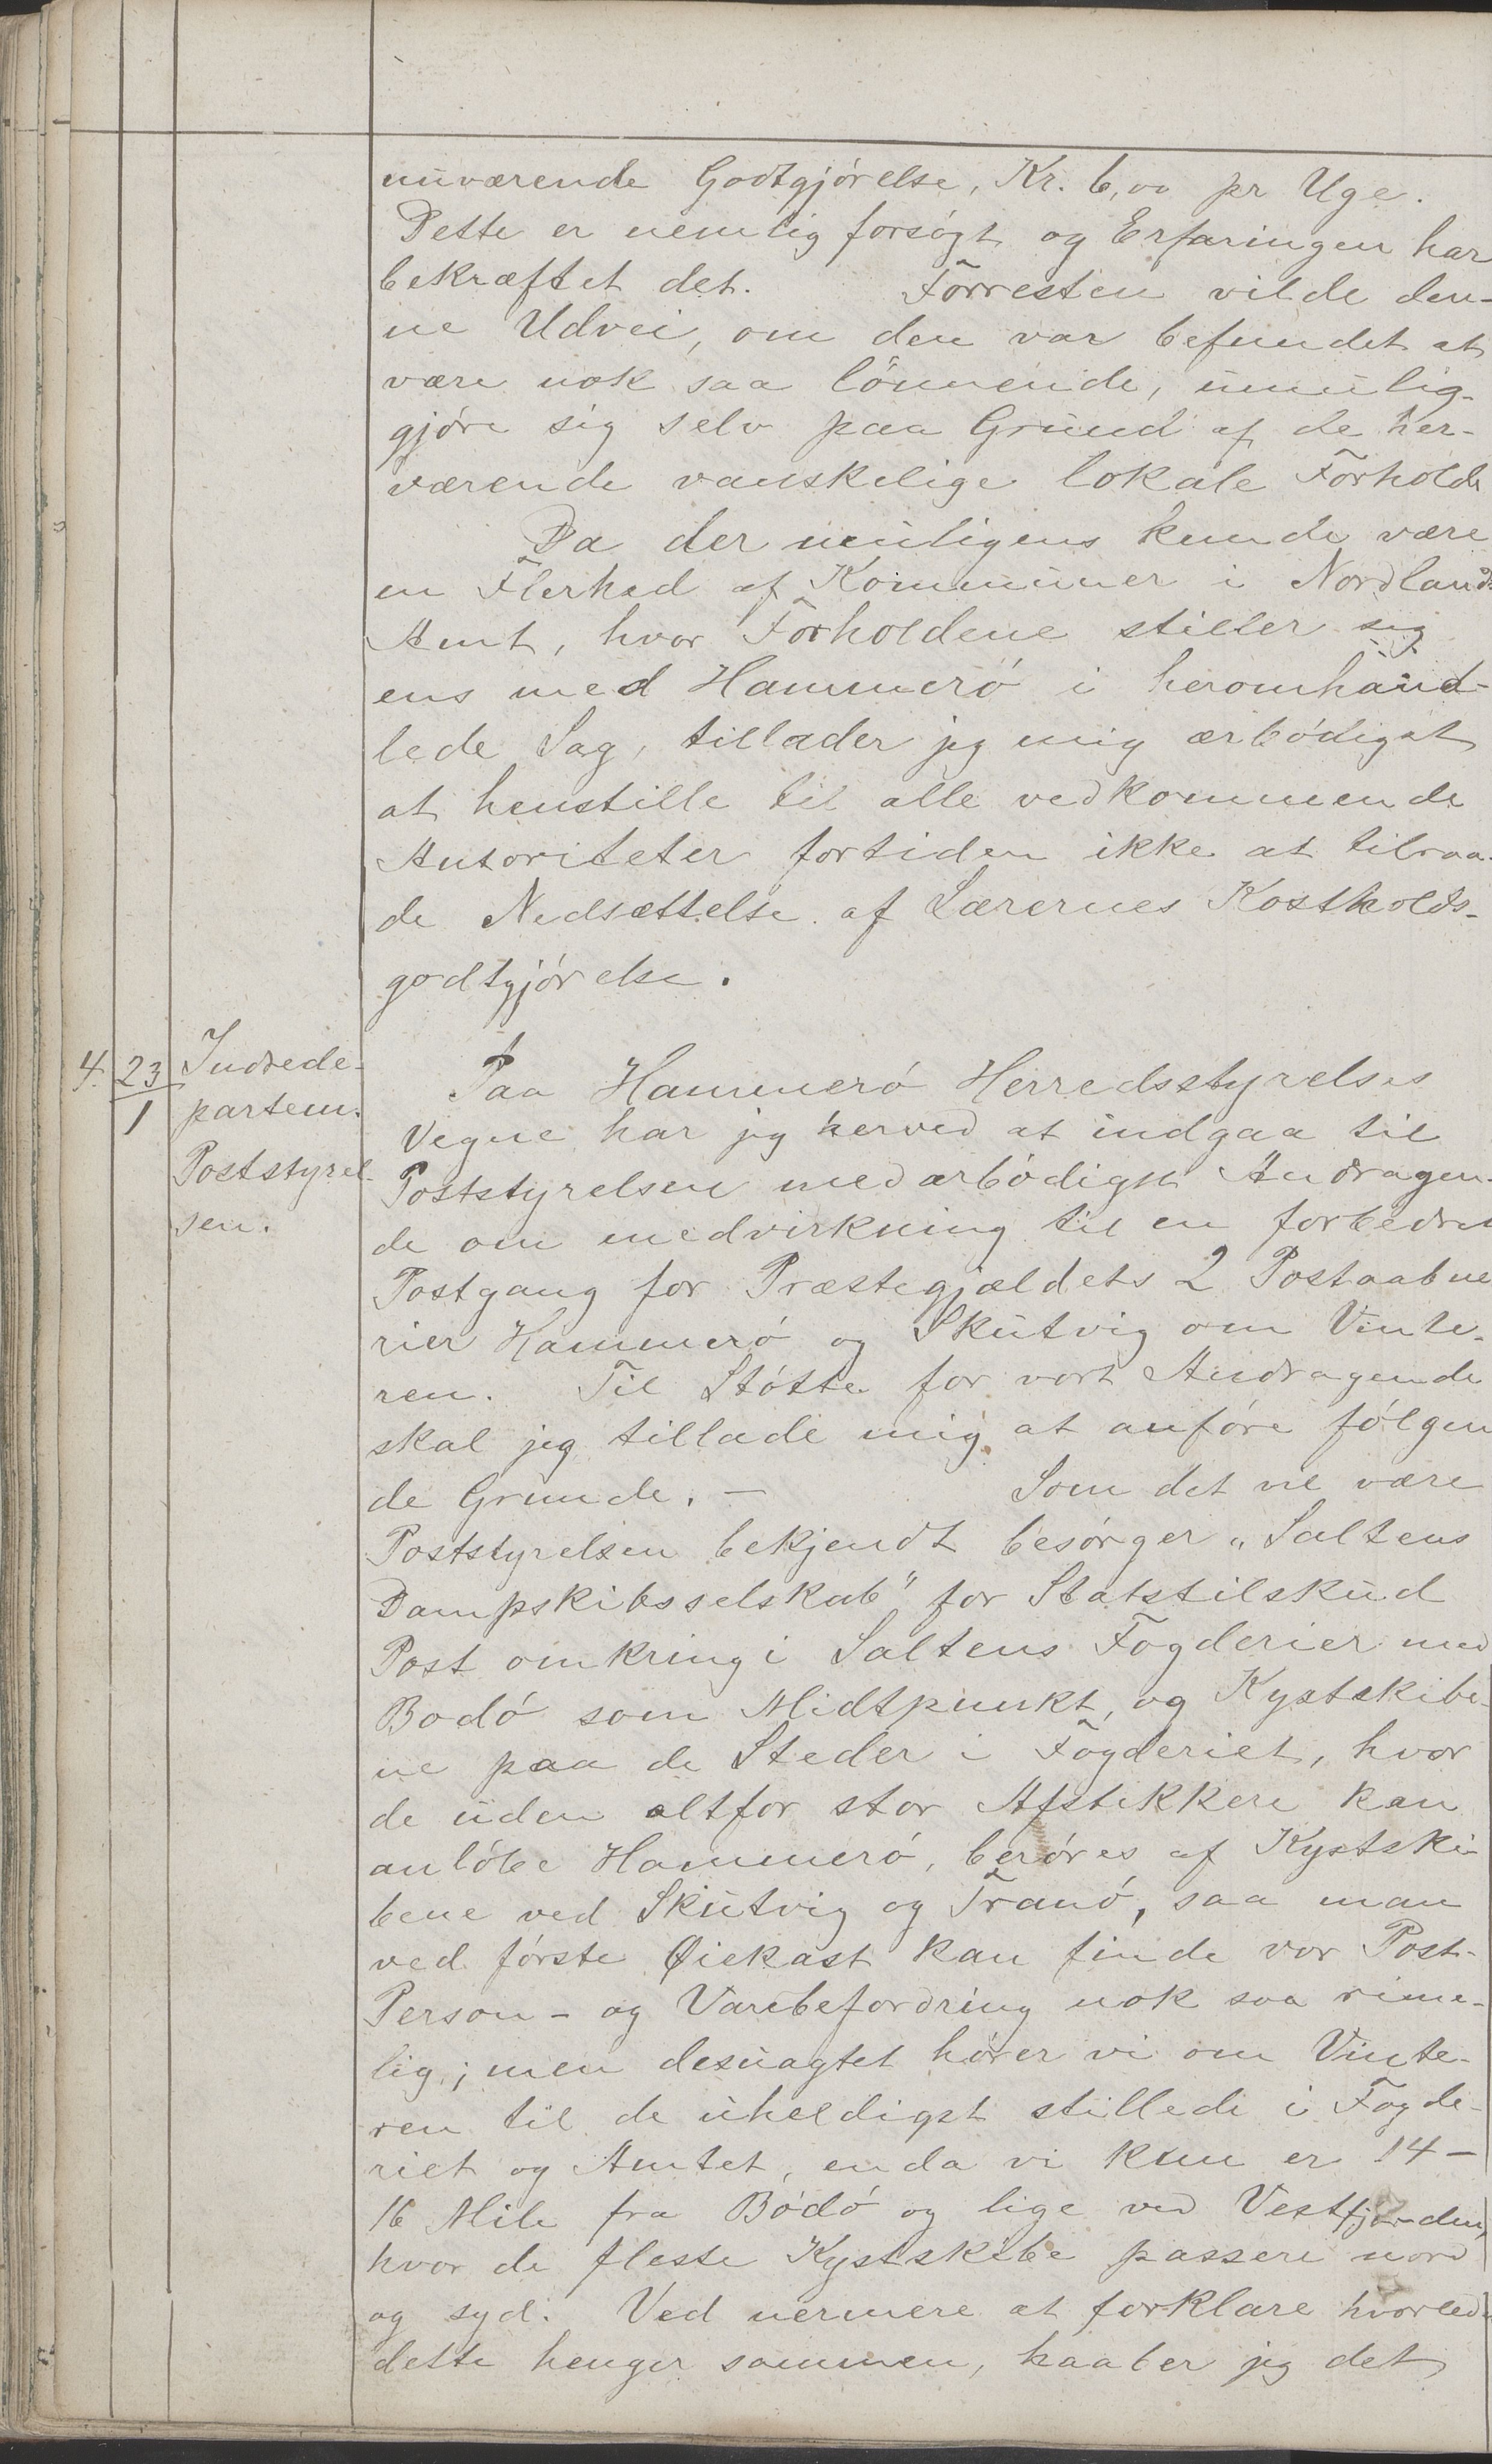 nuværende Godtgjörelse, Kr. 6,00 pr Uge.
Dette er nemlig forsögt og Erfaringen har
bekræftet det. Forresten vilde den-
ne Udvei, om den var befundet at
være nok saa lönnende, umulig-
gjöre sig selv paa Grund af de her-
værende vanskelige lokale Forholde
Da der muligens kunde være
en Flerhed af Kommuner i Nordlands
Amt, hvor Forholdene stiller sig
ens med Hammerö i heromhand-
lede Sag, tillader jeg mig ærbödigst
at henstille til alle vedkommende
Autoriteter fortiden ikke at tilraa-
de Nedsættelse af Lærernes Kostholds-
godtgjörelse.
4. 23/1 Indrede-
partem.
Poststyrel-
sen.
Paa Hammerö Herredsstyrelses
Vegne har jeg herved at indgaa til
Poststyrelsen med ærbödigst Andragen-
de om medvirkning til en forbedret
Postgang for Præstegjældets 2 Postaabne
rier Hammerö og Skutvig om Vinte-
ren. Til Stötte for vort Andragende
skal jeg tillade mig at anföre fölgen
de Grunde. — Som det vil være
Poststyrelsen bekjendt besörger "Saltens
Dampskibsselskab" for Statstilskud
Post omkring i Saltens Fogderier med
Bodö som Midtpunkt, og Kystskibe-
ne paa de Steder i Fogderiet, hvor
de uden altfor stor Afstikkere kan
anlöbe Hammerö, beröres af Kystski-
bene ved Skutvig og Tranö, saa man
ved förste Øiekast kan finde vor Post-
Person- og Varebefordring nok saa rime-
lig; men desuagtet hörer vi om Vinte-
ren til de uheldigst stillede i Fogde-
riet og Amtet, enda vi kun er 14-
16 Mile fra Bódö og lige ved Vestfjorden,
hvor de fleste Kystskibe passere nord
og syd. Ved nermere at forklare hvorledes
dette henger sammen, haaber jeg det